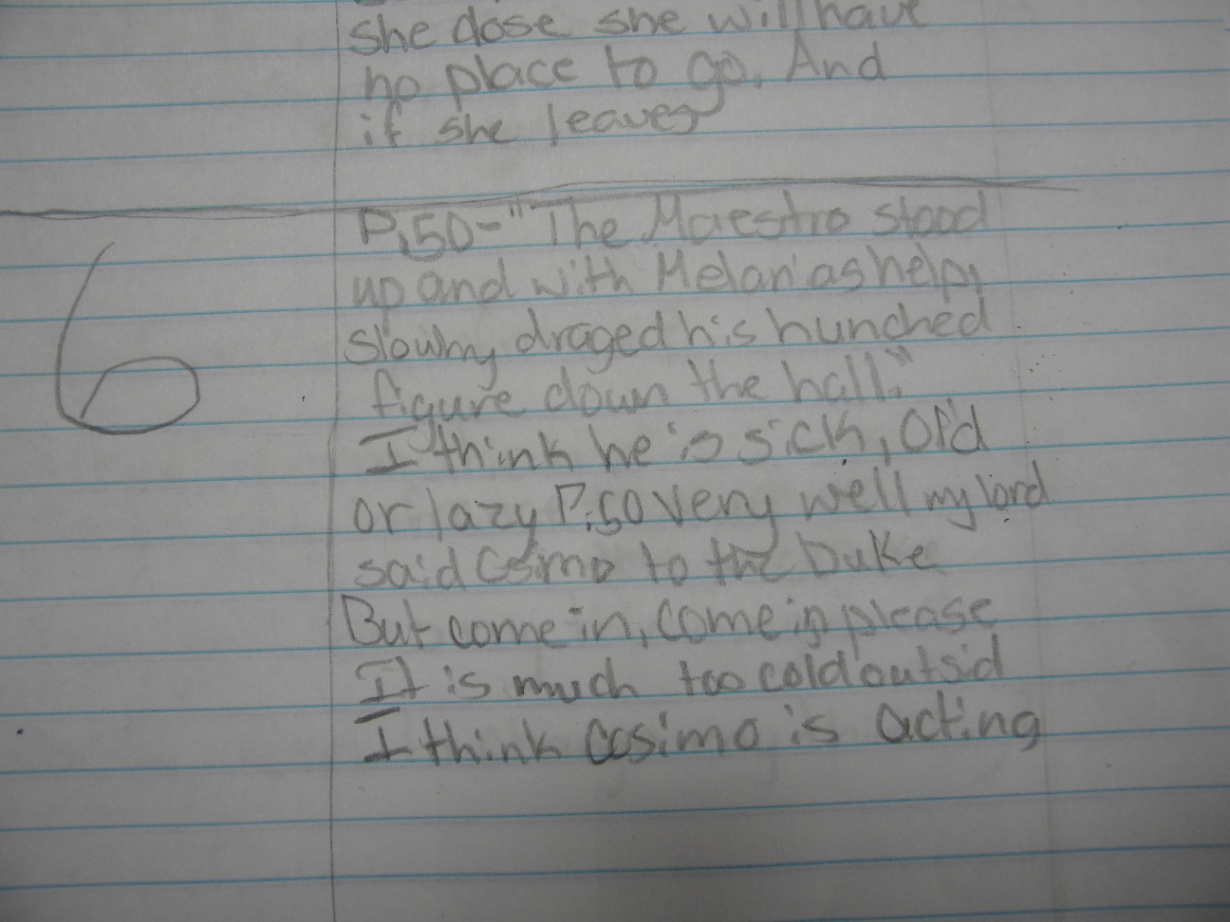 she dose she will have
no place to go. And
if she leaves
6
P.50-"The Maestro stood
up and with Melanias help,
slowhy draged his hunched
figure down the hall."
I think he is sick, old
or lazy P.50 very well my lord
said Cosimo to the Duke
But come in, come in please
It is much too cold outsid
I think Cosimo is acting